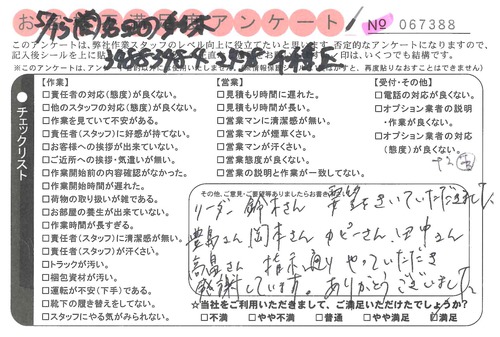 お客様満足度アンケート! No 067388
このアンケートは、弊社作業スタッフのレベル向上に役立てたいと思います。否定的なアンケートになりますので、
チェックリスト
【作業】
□責任者の対応(態度)が良くない。
□他のスタッフの対応(態度)が良くない。
□作業を見ていて不安がある。
□責任者(スタッフ)に好感が持てない。
□お客様への挨拶が出来ていない。
□ご近所への挨拶・気遣いが無い。
□作業開始前の内容確認がなかった。
□作業開始時間が遅れた。
□荷物の取り扱いが雑である。
□お部屋の養生が出来ていない。
□作業時間が長すぎる。
□責任者(スタッフ)に清潔感が無い。
□責任者(スタッフ)が汗くさい。
□トラックが汚い。
□梱包資材が汚い。
□運転が不安(下手)である。
□靴下の履き替えをしてない。
□スタッフにやる気がみられない。
【営業】
□見積もり時間に遅れた。
□見積もり時間が長い。
□営業マンに清潔感が無い。
□営業マンが煙草くさい。
□営業マンが汗くさい。
□営業態度が良くない。
□営業の説明と作業が一致してない。
【受付・その他】
□電話の対応が良くない。
□オプション業者の説明
・作業が良くない。
□オプション業者の対応
(態度)が良くない。
その他、ご意見・ご要望等ありましたらお書きください。
リーダー 鈴木さん 要望をきいていただきました
豊島さん 岡本さん カピーさん、田中さん
高畠さん 指示通り やっていただき
感謝しています。ありがとうございました
☆当社をご利用いただきまして、ご満足いただけたでしょうか?
□不満 □やや不満 □普通 □やや満足 ☑満足